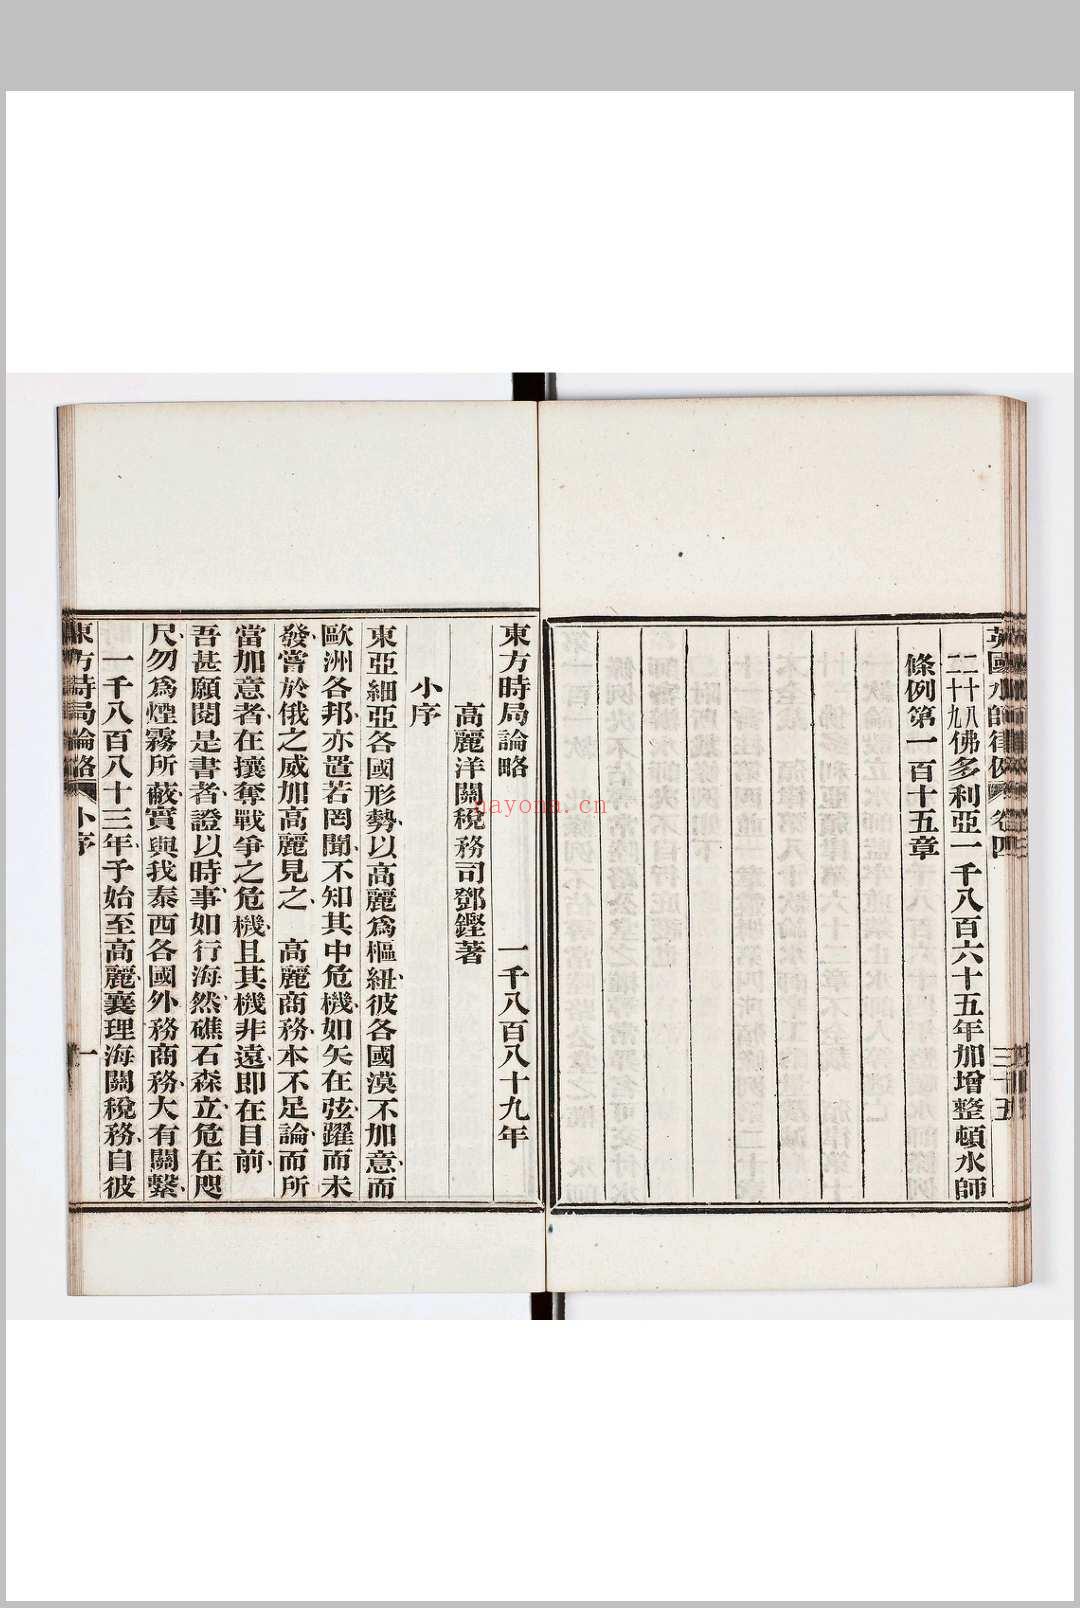 英國水師律例 卷四 三十五
二十八
二十九佛多利亞一千八百六十五年加增整頓水師
條例第一百十五章
東方時局論略 一千八百八十九年
高麗洋關稅務司鄧鏗著
小序
東亞細亞各國形勢以高麗爲樞紐彼各國漠不加意而
歐洲各邦亦置若罔聞不知其中危機如矢在弦躍而未
發嘗於俄之威加高麗見之 高麗商務本不足論而所
當加意者在攘奪戰爭之危機且其機非遠即在目前
吾甚願閱是書者證以時事如行海然礁石森立危在咫
尺勿爲煙霧所蔽實與我泰西各國外務商務大有關繫
一千八百八十三年予始至高麗襄理海關稅務自彼
東方時局論略 小序 一
nayona.cn